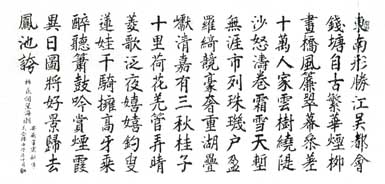 東南形勝江吳都會
錢塘自古繁華煙柳
畫橋風簾翠幕參差
十萬人家雲樹繞隄
沙怒濤卷霜雪天塹
無涯市列珠璣戶盈
羅綺競豪奢重湖疊
巘清嘉有三秋桂子
十里荷花羌管弄晴
菱歌泛夜嬉嬉釣叟
蓮娃千騎擁高牙乘
醉聽簫鼓吟賞煙霞
異日圖將好景歸去
鳳池誇